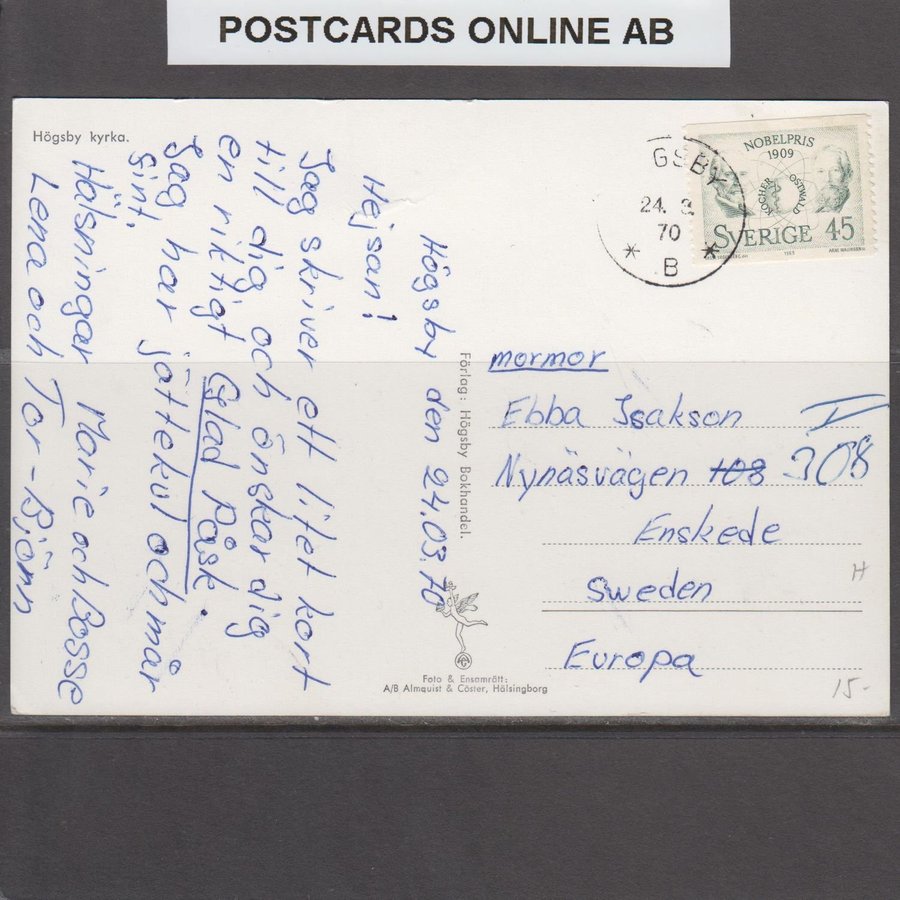 POSTCARDS ONLINE AB
Högsby kyrka.
Högsby den 24.03.70
Hejsan!
Jag skriver ett litet kort
till dig och önskar dig
en riktigt Glad Påsk.
Jag har jättekul och mår
fint.
Hälsningar Marie och Bosse
Lena och Tor-Björn
Förlag: Högsby Bokhandel.
Foto & Ensamrätt:
A/B Almquist & Cöster, Hälsingborg
GSBY
24. 3
70
* B *
NOBELPRIS
1909
KOCHER OSTWALD
SVERIGE 45
1969
mormor
Ebba Isakson
Nynäsvägen 108 308
Enskede
Sweden
Europa
H
15-